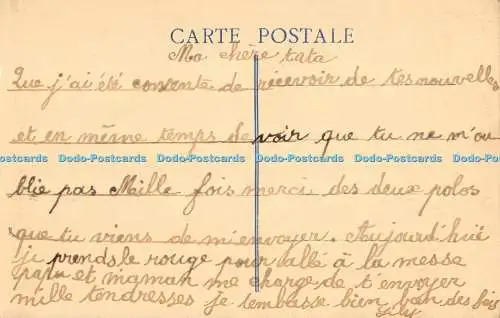 CARTE POSTALE
Ma chère tata
Que j'ai été contente de recevoir de tes nouvelles
et en même temps de voir que tu ne m'ou
Dodo-Postcards Dodo-Postcards Dodo-Postcards Dodo-Postcards Dodo-Postcards Dodo-Postcards
blie pas Mille fois merci des deux polos
que tu viens de m'envoyer. Aujourd'hui
je prends le rouge pour allé à la messe
papa et maman me charge de t'envoyer
mille tendresses je tembasse bien des fois
Lily